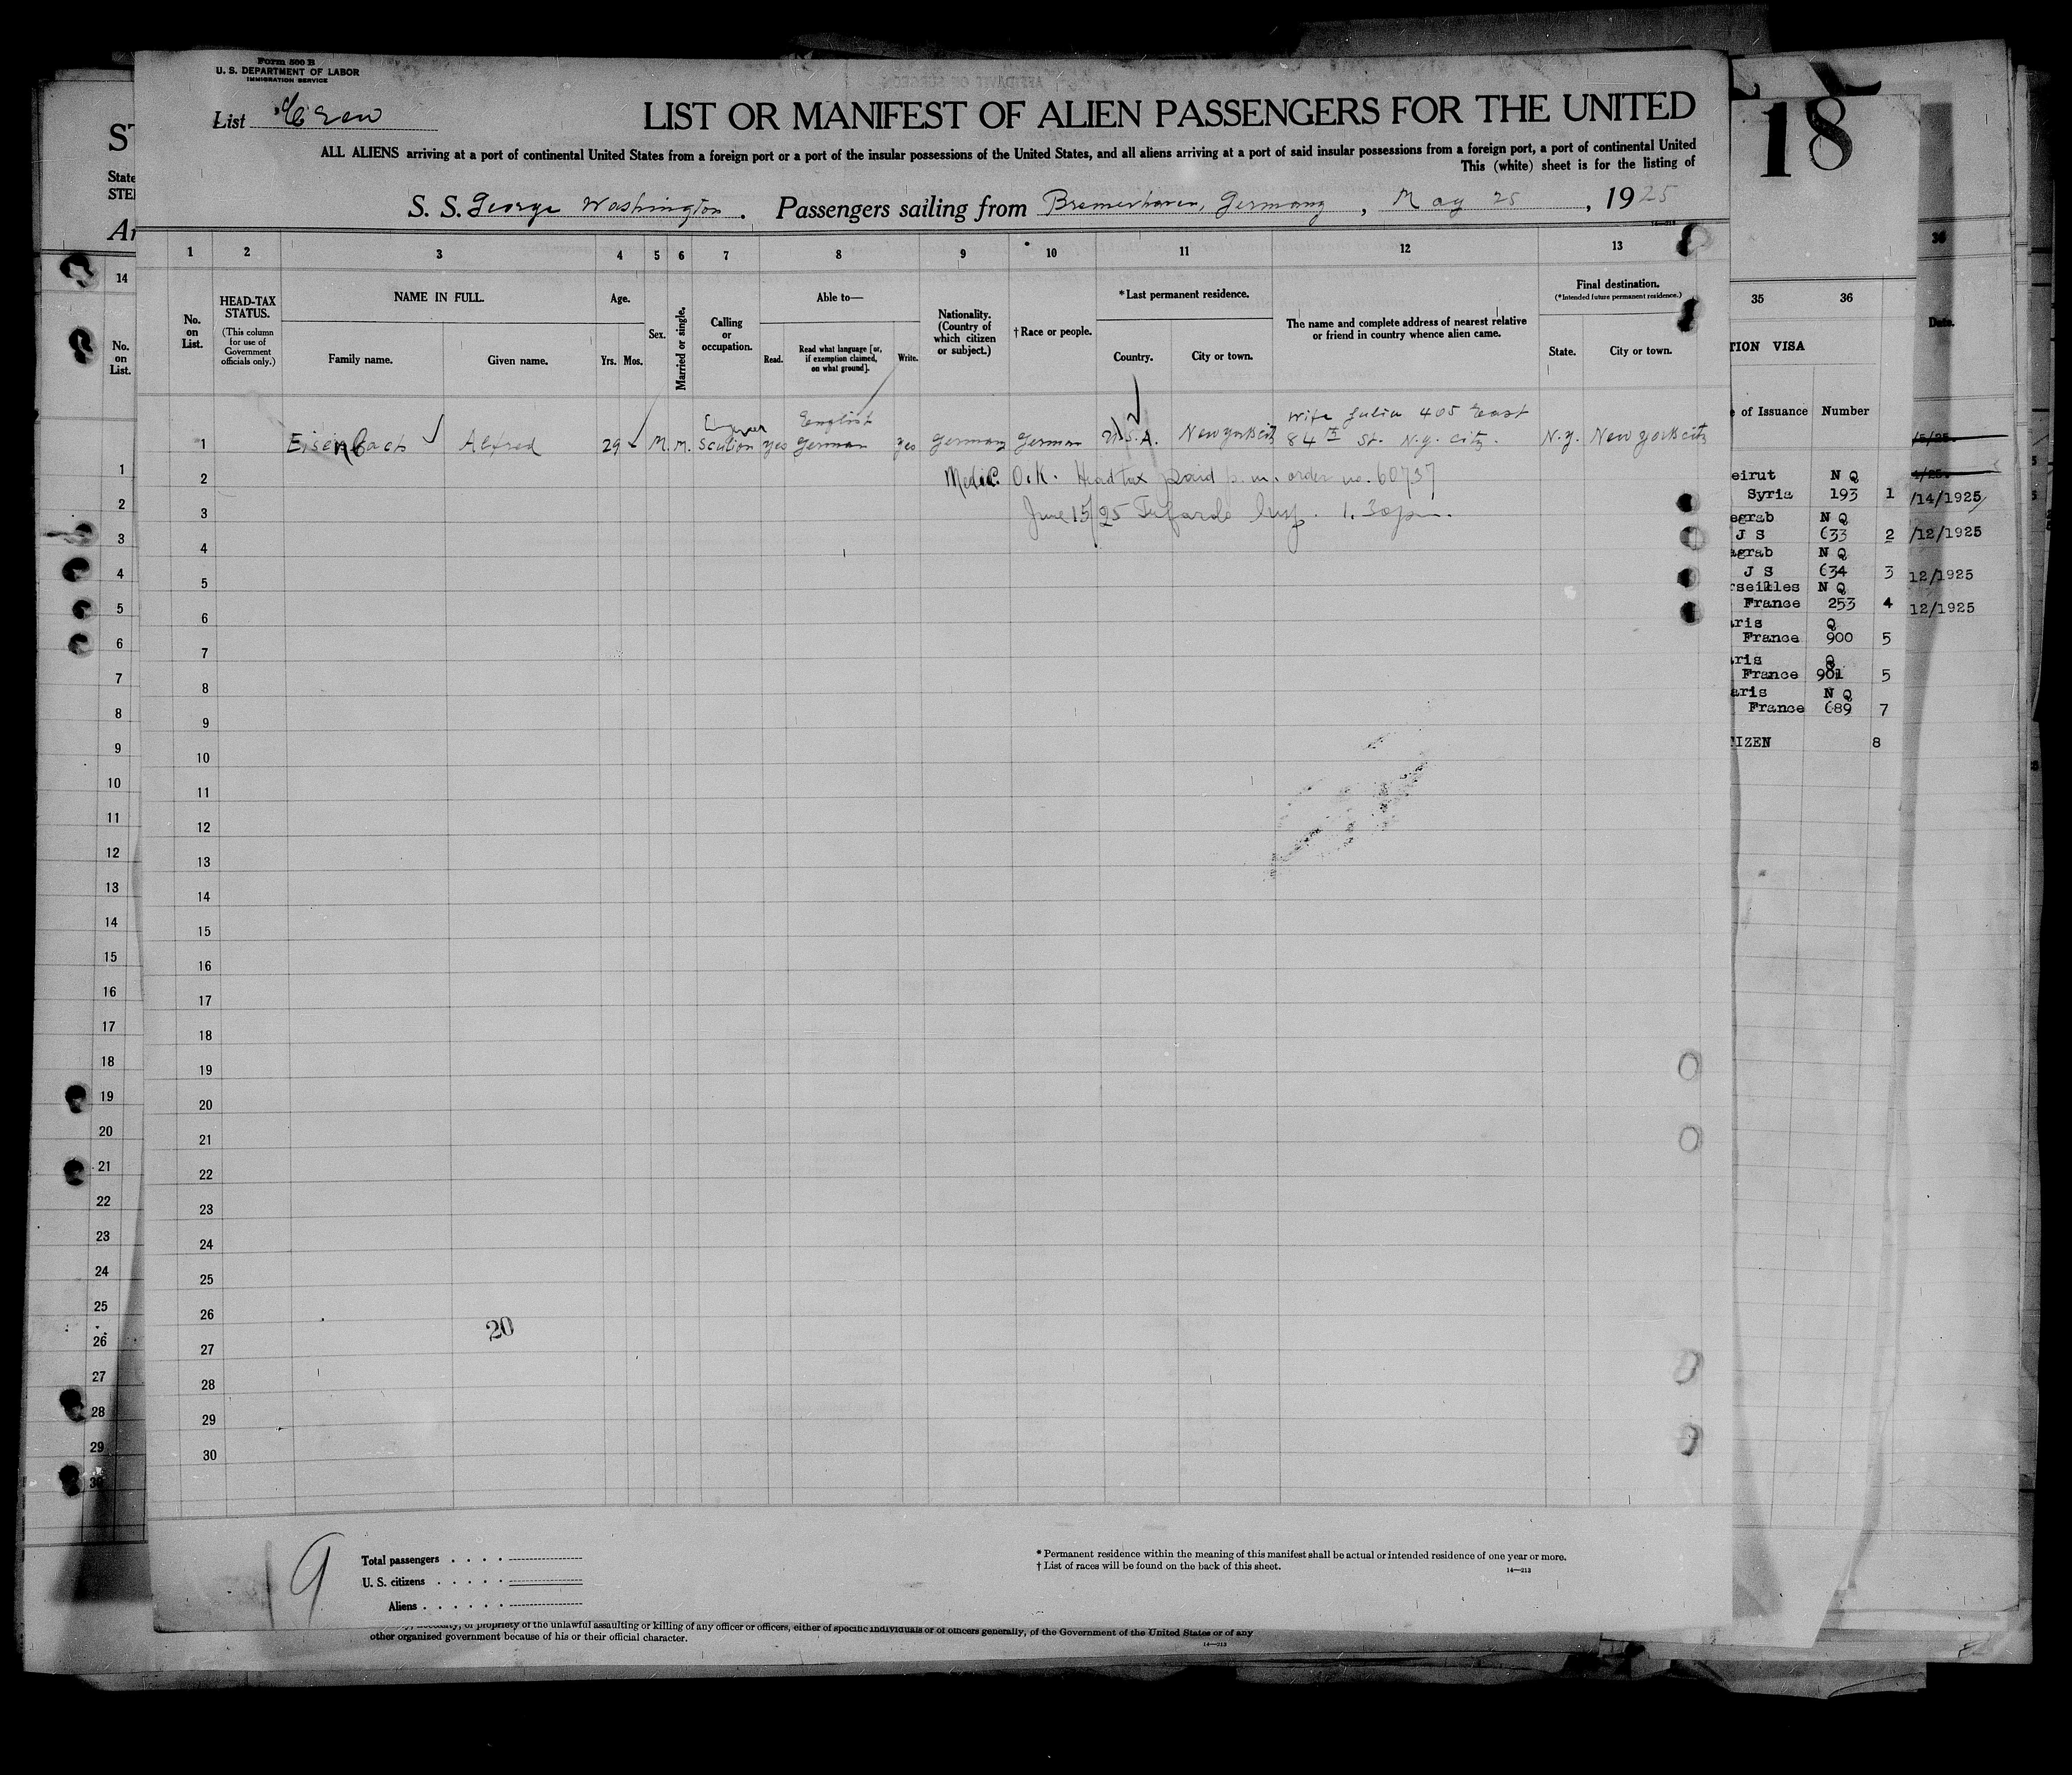 Form 500 B
U. S. DEPARTMENT OF LABOR
IMMIGRATION SERVICE
List Crew
LIST OR MANIFEST OF ALIEN PASSENGERS FOR THE UNITED
ALL ALIENS arriving at a port of continental United States from a foreign port or a port of the insular possessions of the United States, and all aliens arriving at a port of said insular possessions from a foreign port, a port of continental United
This (white) sheet is for the listing of
S. S. George Washington. Passengers sailing from Bremerhaven, Germany, May 25, 1925
14—213
1 2 3 4 5 6 7 8 9 10 11 12 13
No. on List.
HEAD-TAX STATUS.
(This column for use of Government officials only.)
NAME IN FULL.
Family name. Given name.
Age.
Yrs. Mos.
Sex.
Married or single.
Calling or occupation.
Able to—
Read. Read what language [or, if exemption claimed, on what ground]. Write.
Nationality. (Country of which citizen or subject.)
† Race or people.
* Last permanent residence.
Country. City or town.
The name and complete address of nearest relative or friend in country whence alien came.
Final destination.
(* Intended future permanent residence.)
State. City or town.
English
wife Julia 405 East
1 Eisenbach Alfred 29 M. M. Scullion yes German yes Germany German U.S.A. New york city 84th St. N.y. city. N.y. New york city
2 Medic. O.K. Head tax paid p. m. order no. 60737
3 June 15/25 Insp. 1.30 pm.
4
5
6
7
8
9
10
11
12
13
14
15
16
17
18
19
20
21
22
23
24
25
26
20
27
28
29
30
9
Total passengers
U. S. citizens
Aliens
* Permanent residence within the meaning of this manifest shall be actual or intended residence of one year or more.
† List of races will be found on the back of this sheet.
14—213
or propriety of the unlawful assaulting or killing of any officer or officers, either of specific individuals or of officers generally, of the Government of the United States or of any
other organized government because of his or their official character.
14—213
ST
State
STE
14
No. on List.
1
2
3
4
5
6
7
8
9
10
11
12
13
14
15
16
17
18
19
20
21
22
23
24
25
26
27
28
29
30
18
35 36
TION VISA
e of Issuance Number
eirut N Q
Syria 193 1
egrab N Q
J S 633 2
agrab N Q
J S 634 3
rseilles N Q
France 253 4
aris Q
France 900 5
aris Q
France 901 5
aris N Q
France 689 7
IZEN 8
Date.
/14/1925
/12/1925
12/1925
12/1925